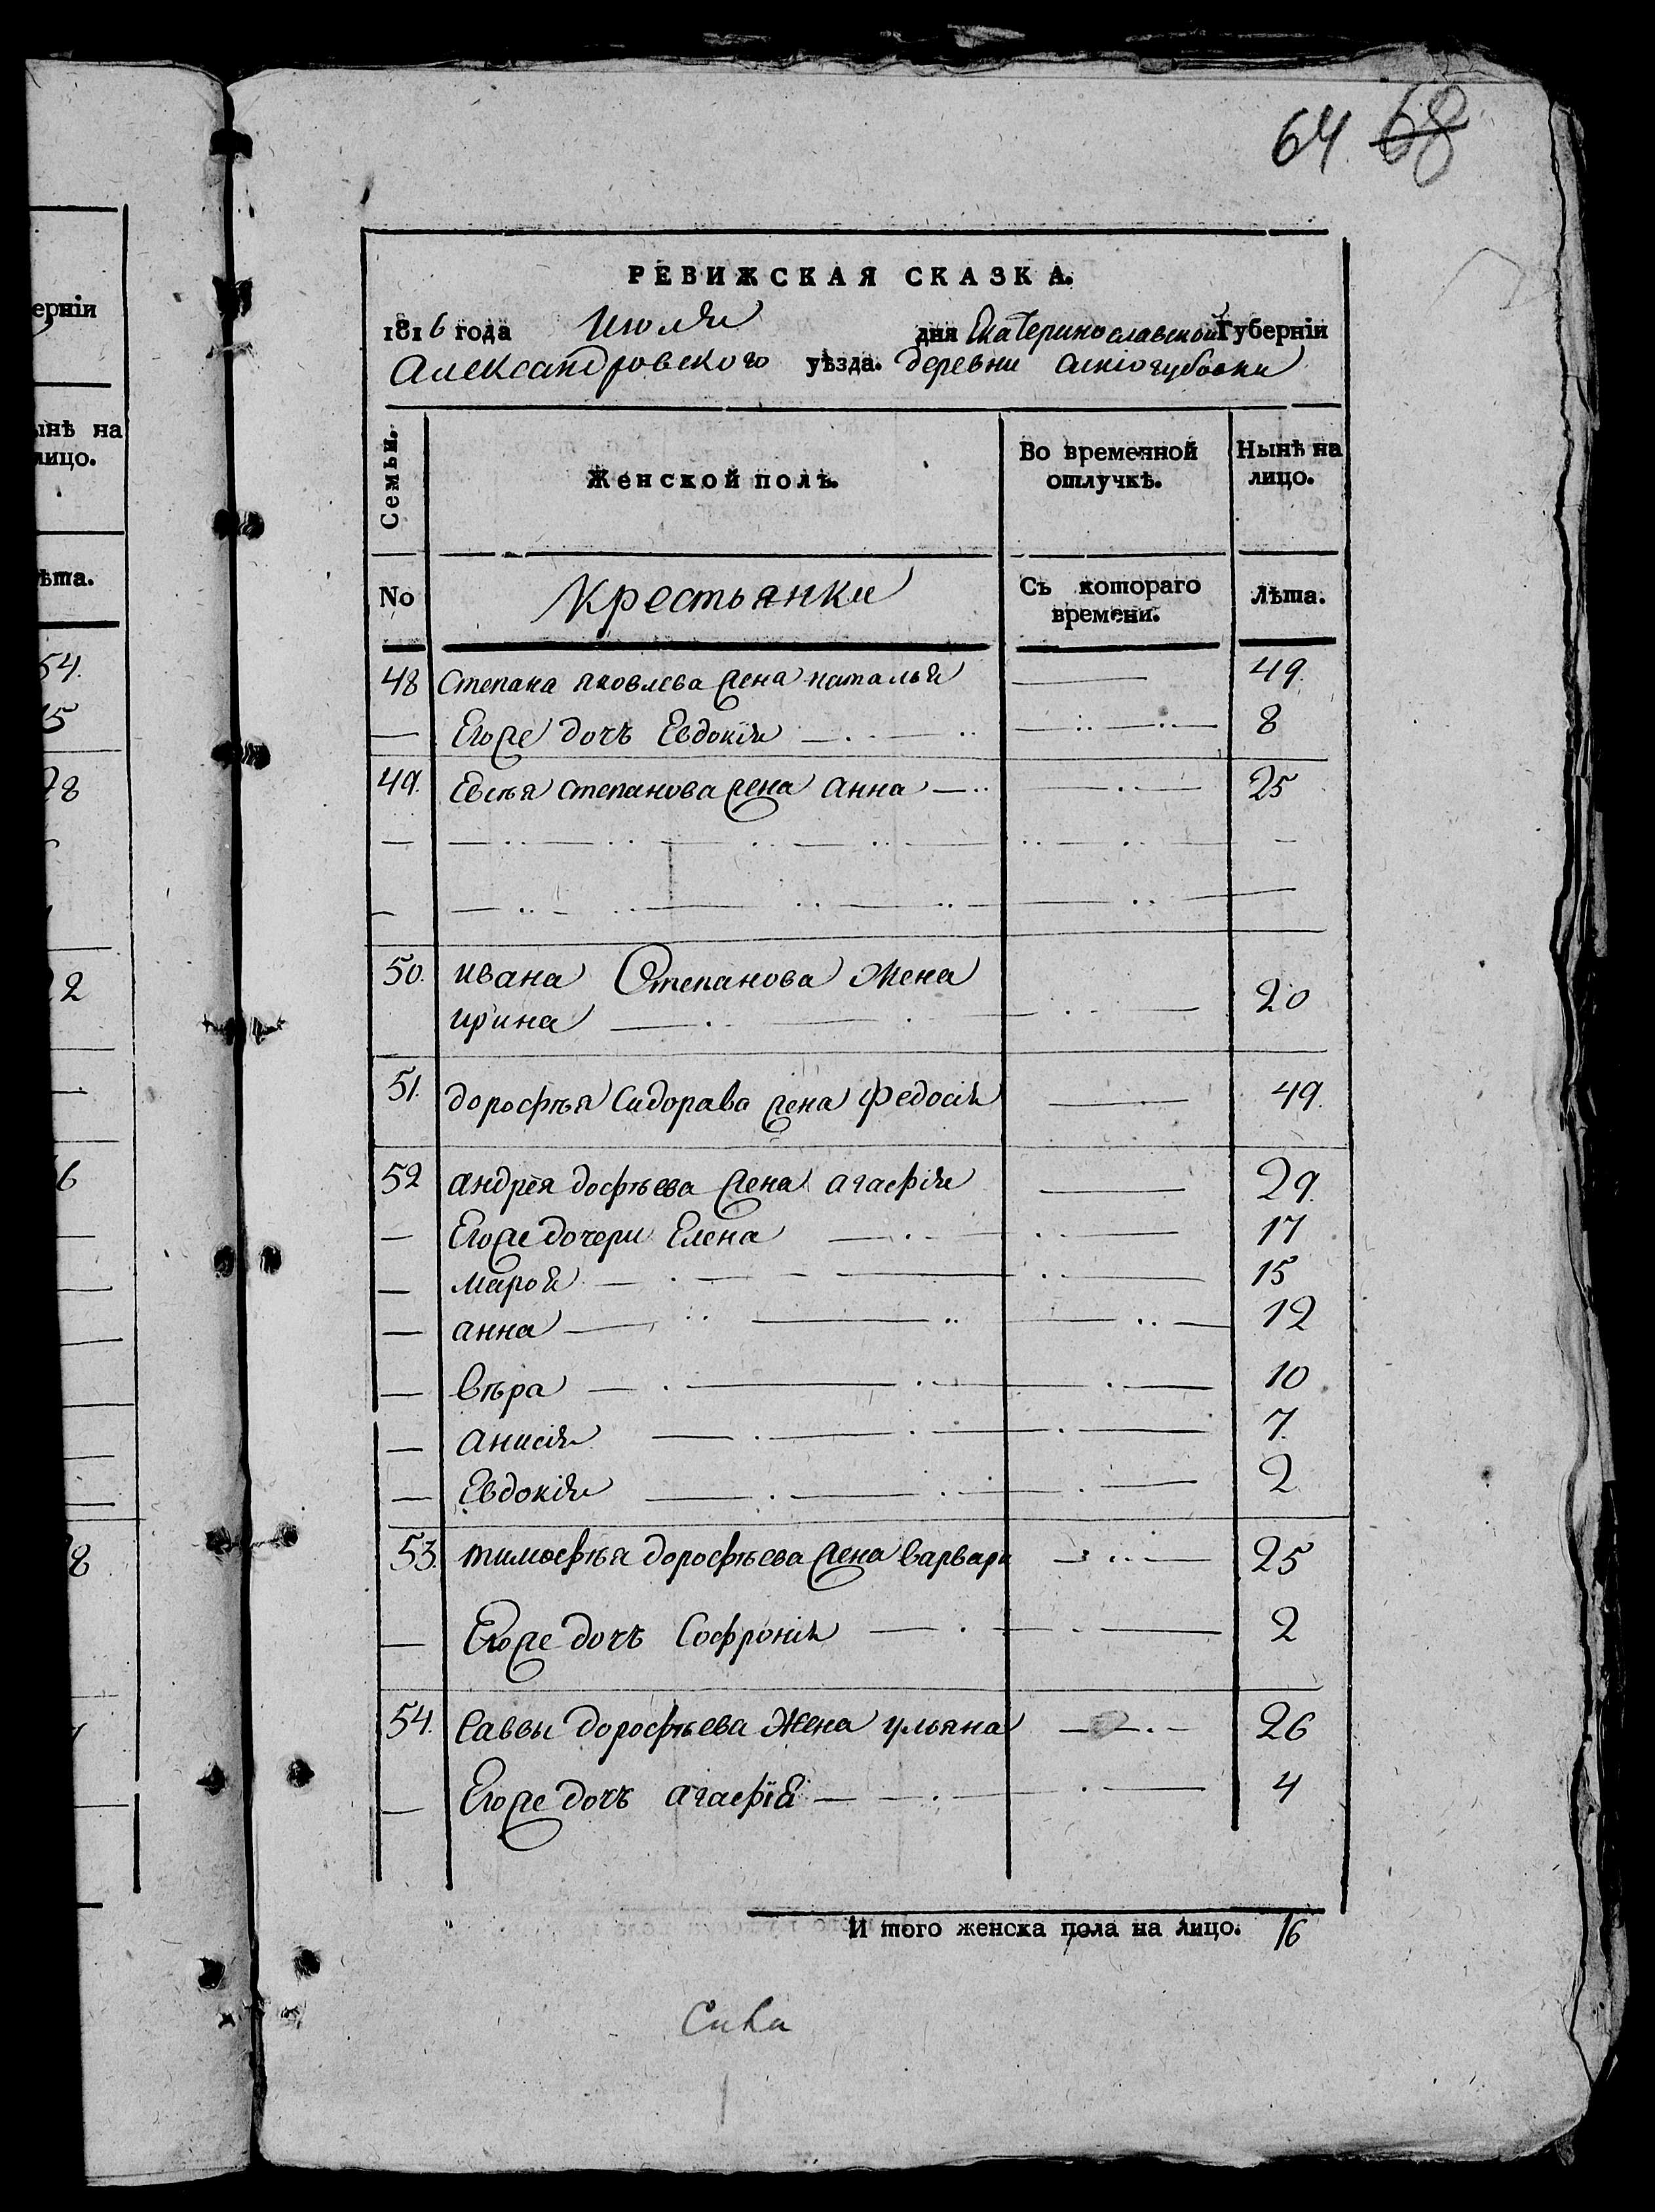 64. 68
РЕВИЖСКАЯ СКАЗКА.
1816 года Июля дня Екатеринославской Губерніи
Александровского уѣзда. деревни
Семьи. Женской полъ. Во временной отлучкѣ. Нынѣ на лицо.
No Крестьянки Съ котораго времени. Лѣта.
48 Степана Яковлева жена наталья 49.
— Егоже дочь Евдокія 8
49. Евсѣя степанова жена анна 25
50. ивана Степанова жена
ирина 20
51. дорофѣя Сидорава жена Федосія 49.
52 андрея дофѣева жена агафія 29.
— Егоже дочери Елена 17
— марія 15
— анна 12
— вѣра 10
— анисія 7.
— Евдокія 2
53. тимофѣя дорофѣева жена варвара 25
— Егоже дочь Софронія 2
54. Саввы дорофѣева жена ульяна 26
— Егоже дочь агафія 4
И того женска пола на лицо. 16
ерніи
ынѣ на
лицо.
ѣта.
54.
15
28
2
6
8